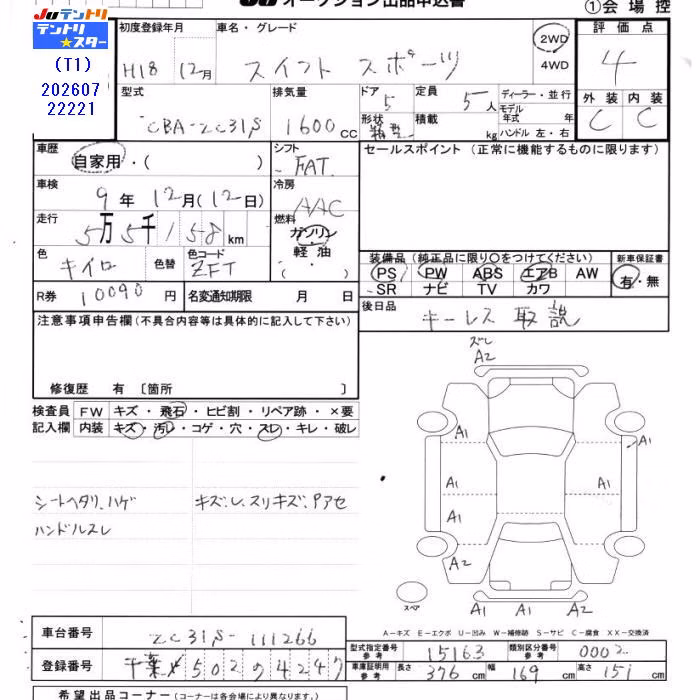 JU オークション出品申込書
①会場控
JUテントリ
テントリ★スター
(T1)
202607
22221
初度登録年月 車名・グレード 2WD 4WD 評価点
H18 12月 スイフト スポーツ 4
型式 排気量 ドア 定員 ディーラー・並行 外装 内装
CBA-ZC31S 1600cc 5 5人 モデル年式 年 C C
形状 積載 kg ハンドル 左・右
車歴 自家用・( ) シフト FAT セールスポイント(正常に機能するものに限ります)
車検 9年 12月(12日) 冷房 AAC
走行 5万5千158km 燃料 ガソリン 軽油 ( )
色 キイロ 色替 色コード ZFT
装備品(純正品に限り○をつけてください) 新車保証書
PS PW ABS エアB AW 有・無
SR ナビ TV カワ
R券 10090円 名変通知期限 月 日
後日品 キーレス 取説
注意事項申告欄(不具合内容等は具体的に記入して下さい)
修復歴 有 [箇所 ]
検査員 FW キズ・飛石・ヒビ割・リペア跡・×要
記入欄 内装 キズ・汚レ・コゲ・穴・スレ・キレ・破レ
ズレ
A2
A1
A1
A1 A1
A1
A2
シートヘタリ、ハゲ キズ、レ、スリキズ、Pアセ
ハンドルスレ
スペア
A1 A2 A2
A-キズ E-エクボ U-凹み W-補修跡 S-サビ C-腐食 XX-交換済
車台番号 ZC31S-111266
型式指定番号 参考 15163 類別区分番号 参考 0002
登録番号 千葉 502 ﾈ 4247
車庫証明用 参考 長さ 376cm 幅 169cm 高さ 151cm
希望出品コーナー(コーナーは各会場により異なります。)